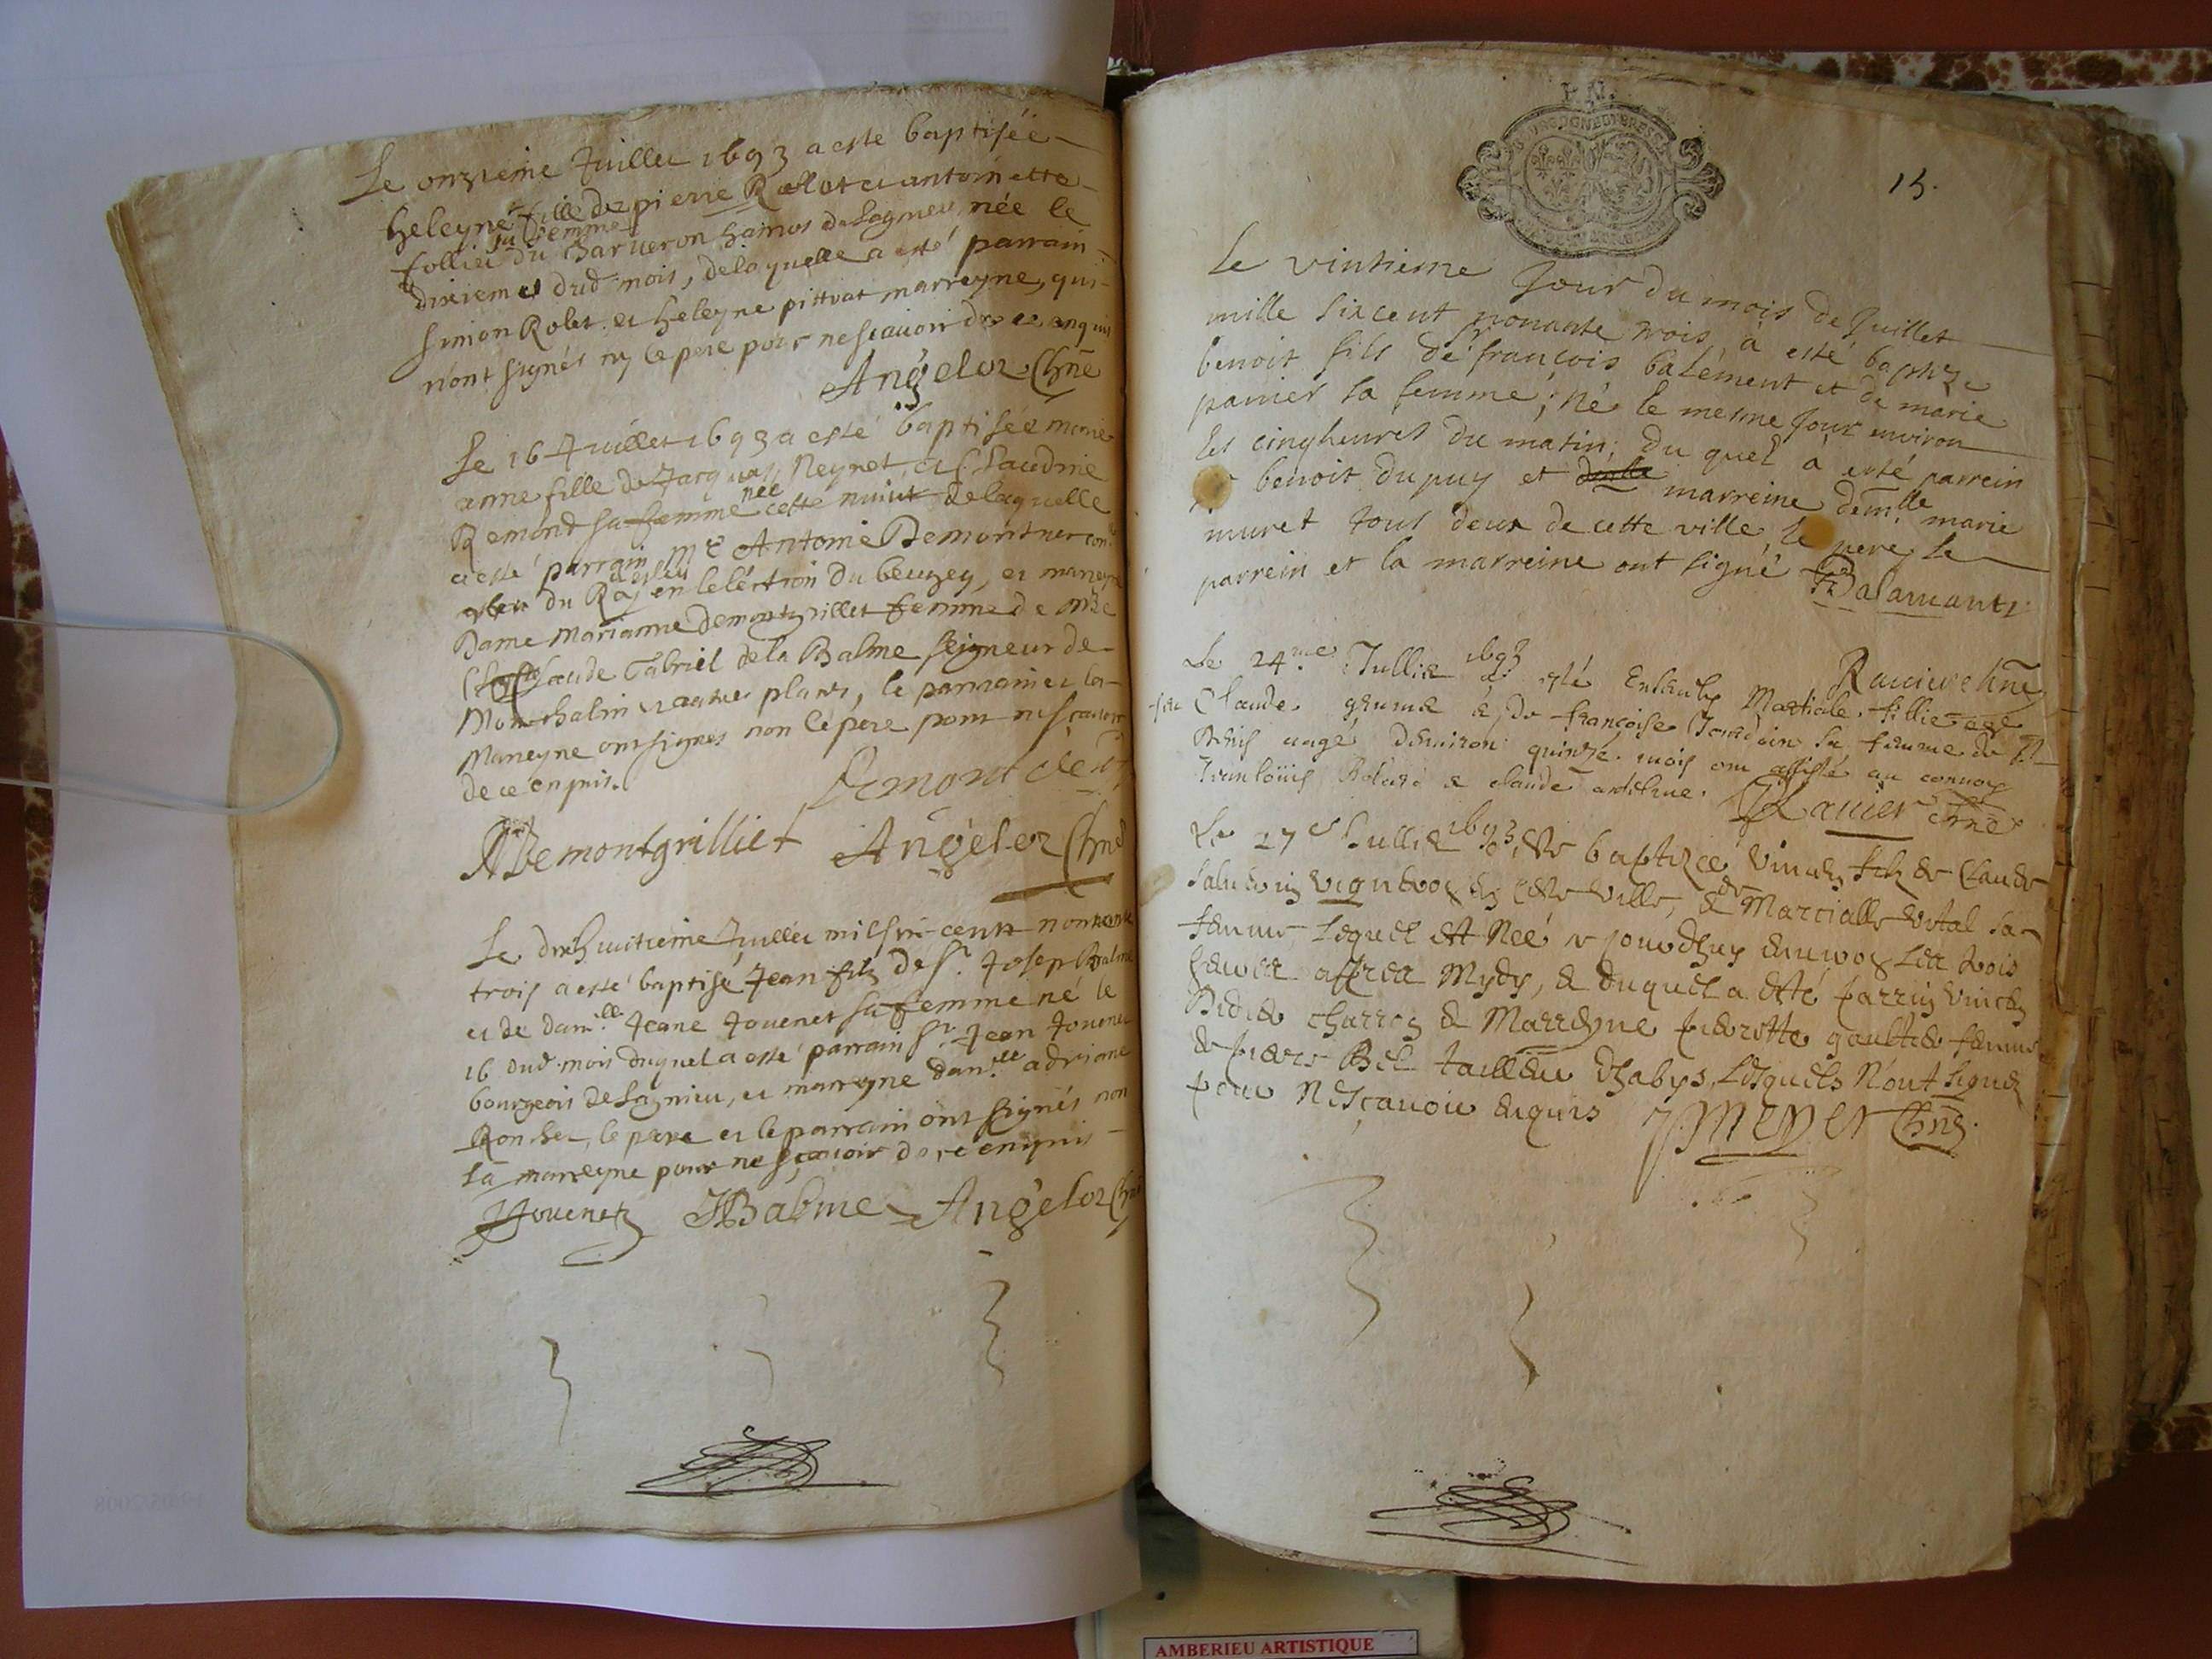 Le onzieme Juillet 1693 a esté baptisée
heleyne fille de pierre Rolet et antoinette
sa femme
follier du Charveron hamos de Lagnieu née le
dixieme dud mois, de laquelle a esté parrain
Simion Rolet et heleyne pittrat marreyne, qui
n'ont signés ny le pere pour ne scavoir de ce enquis
Angelot Chne
Le 16 Juillet 1693 a esté baptisée marie
anne fille de Jacques Neyret, et Claudine
Remond sa femme née cette nuit de laquelle
a esté parrain Mre Antoine Demontner con.
esleu
du Roy en leléction du beugey, et marreyne
Dame Marianne demontgrillet femme de mre
Claude Gabriel dela Balme seigneur de
Montchalin et autres places, le parrain et la
Marreyne ont signés non le pere pour ne scavoir
de ce enquis.
Demontgrilliet Angelot Chne
Le dixhuitieme Juillet mil six cent nonante
trois a esté baptisé Jean fils de Sr. Joseph Balme
et de dam.lle Jeane Jouenet sa femme né le
16 dud. mois duquel a esté parrain Sr Jean Jouenet
bourgeois de Lagnieu, et marreyne dam.lle adriane
Ronchet, le pere et le parrain ont signés non
la marreyne pour ne scavoir de ce enquis
Jouenet JBalme Angelot Chne
BOURGOGNE BRESSE
15.
Le vintieme Jour du mois de Juillet
mille sixcent nonante trois, à esté baptize
benoit fils de Sr françois balément et de marie
panier sa femme; né le mesme Jour environ
les cinq heures du matin; du quel à esté parrein
benoit dupuy et marreine dem.lle marie
muret tous deux de cette ville, le pere, le
parrein et la marreine ont signé
Balamant
Le 24me Jullie 1693 a esté Enseulis Martiale, fillie
feu Claude et de françoise Jourdain sa femme de St
Denis aagé denviron quinze mois ont assisté au convoy
Jean louis et claude antelme. Ranier Chne
Le 27e Jullie 1693, este baptizee vincen filz de Claude
vigneron de ceste ville, & de Marcialle vital sa
femme lequel est neé ce jourdhuy environ les trois
heures appres Mydy, & duquel a esté parrin vincen
Didier charron & Marreyne pierrette gaultier femme
de pierre Bel tailleur dhabys, lesquels n'ont signez
pour ne sçavoir enquis J. meyer Chne.
AMBERIEU ARTISTIQUE